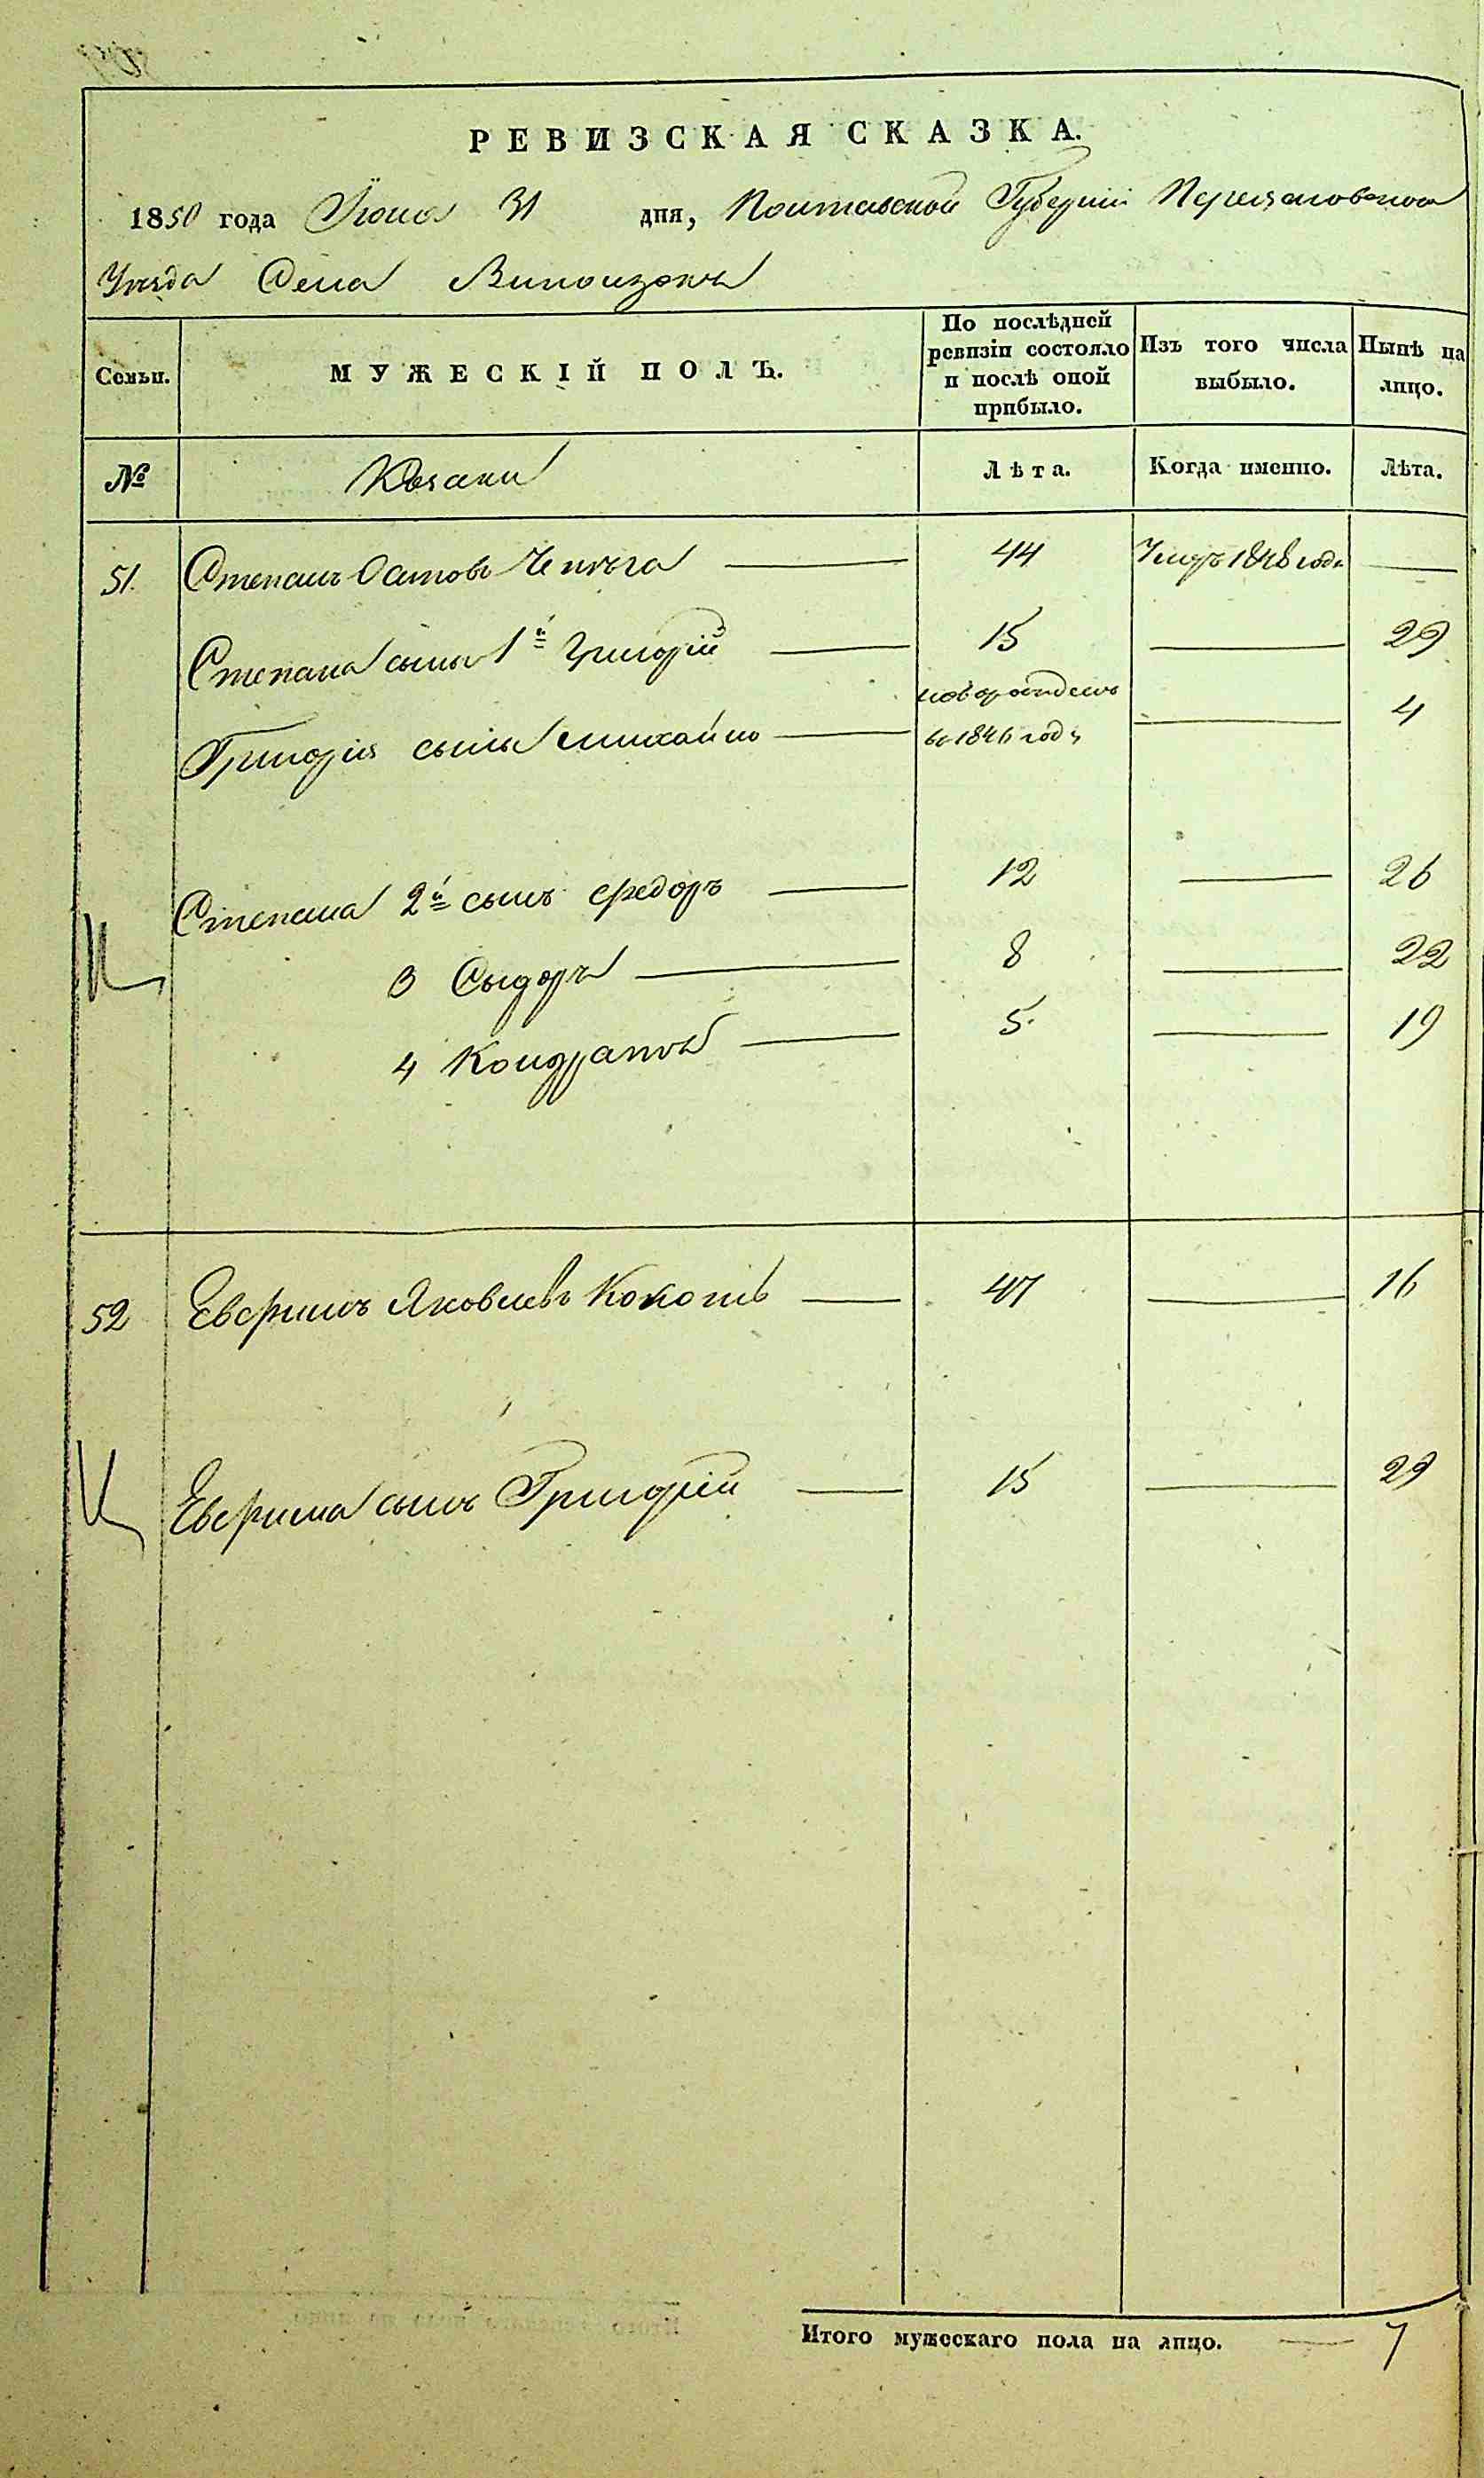 РЕВИЗСКАЯ СКАЗКА.
1850 года Июня 31 дня, Полтавской Губерніи Переяславского
Уезда Села
Семьи. МУЖЕСКІЙ ПОЛЪ. По послѣдней ревизіи состояло и послѣ оной прибыло. Изъ того числа выбыло. Нынѣ на лицо.
№ Козаки Лѣта. Когда именно. Лѣта.
51. Степанъ 44 1848 года
Степана сынъ 1й Григорій 15 29
Григорія сынъ Михайло новорожденъ въ 1846 году 4
Степана 2й сынъ Федоръ 12 26
3 Сыдоръ 8 22
4 Кондратъ 5. 19
52 Ефримъ Яковлевъ Кокоть 47 16
Ефрима сынъ Григорій 15 29
Итого мужескаго пола на лицо. 7